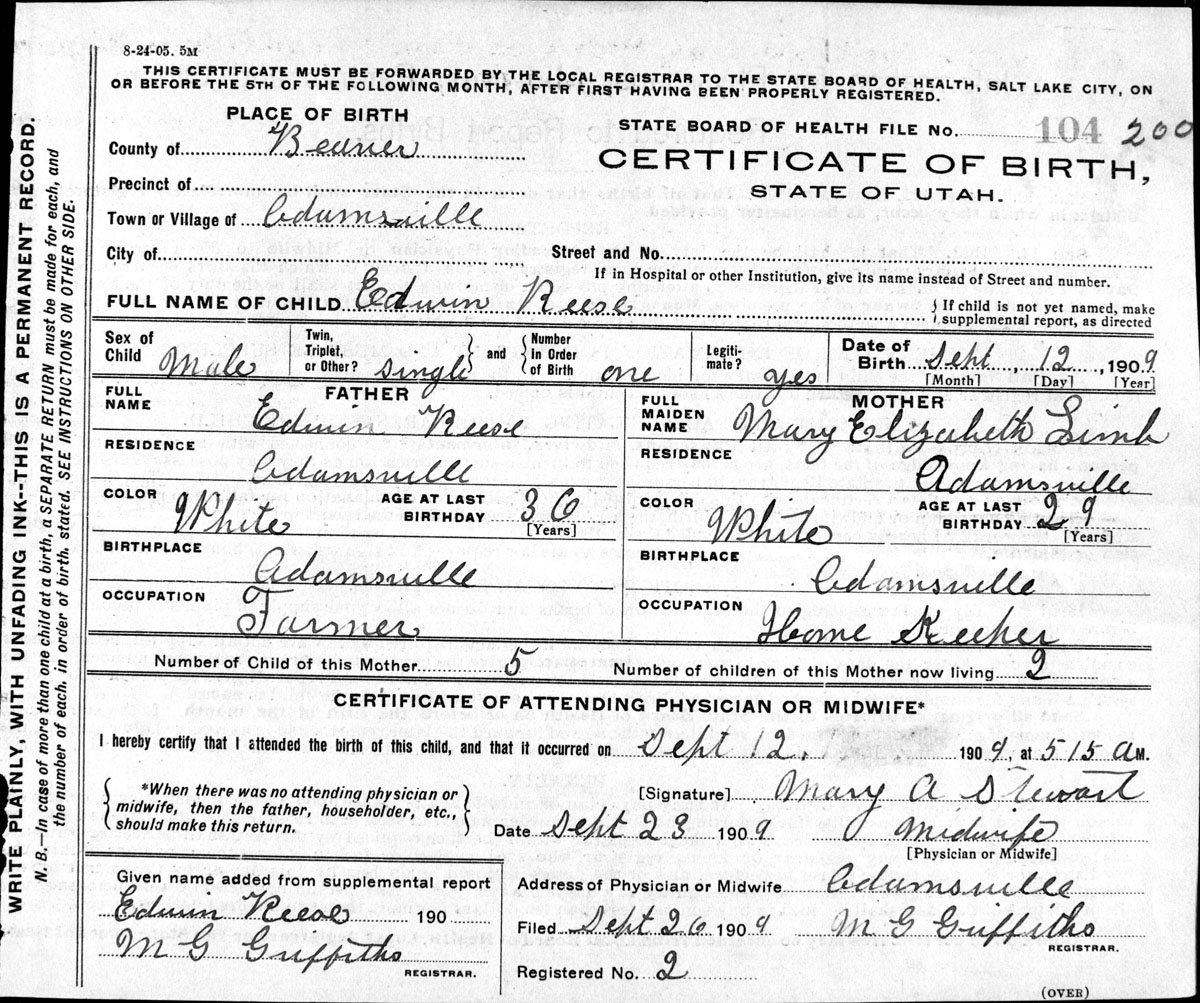 8-24-05. 5M
THIS CERTIFICATE MUST BE FORWARDED BY THE LOCAL REGISTRAR TO THE STATE BOARD OF HEALTH, SALT LAKE CITY, ON
OR BEFORE THE 5TH OF THE FOLLOWING MONTH, AFTER FIRST HAVING BEEN PROPERLY REGISTERED.
PLACE OF BIRTH
County of Beaver
Precinct of
Town or Village of Adamsville
City of
STATE BOARD OF HEALTH FILE No. 104 200
CERTIFICATE OF BIRTH,
STATE OF UTAH.
Street and No.
If in Hospital or other Institution, give its name instead of Street and number.
FULL NAME OF CHILD Edwin Reese
{ If child is not yet named, make
supplemental report, as directed
Sex of Child Male
Twin, Triplet, or Other? Single } and { Number in Order of Birth one
Legiti-mate? yes
Date of Birth Sept, 12, 1909
[Month] [Day] [Year]
FATHER
FULL NAME Edwin Reese
RESIDENCE Adamsville
COLOR White AGE AT LAST BIRTHDAY 36 [Years]
BIRTHPLACE Adamsville
OCCUPATION Farmer
MOTHER
FULL MAIDEN NAME Mary Elizabeth Limb
RESIDENCE Adamsville
COLOR White AGE AT LAST BIRTHDAY 29 [Years]
BIRTHPLACE Adamsville
OCCUPATION Home Keeper
Number of Child of this Mother 5 Number of children of this Mother now living 2
CERTIFICATE OF ATTENDING PHYSICIAN OR MIDWIFE*
I hereby certify that I attended the birth of this child, and that it occurred on Sept 12, 1909, at 515 AM.
{ *When there was no attending physician or
midwife, then the father, householder, etc.,
should make this return. }
[Signature] Mary A Stewart
Date Sept 23 1909 Midwife
[Physician or Midwife]
Given name added from supplemental report
Edwin Reese 190
M G Griffiths
REGISTRAR.
Address of Physician or Midwife Adamsville
Filed Sept 26 1909 M G Griffiths
REGISTRAR.
Registered No. 2
(OVER)
WRITE PLAINLY, WITH UNFADING INK--THIS IS A PERMANENT RECORD.
N. B.—In case of more than one child at a birth, a SEPARATE RETURN must be made for each, and
the number of each, in order of birth, stated. SEE INSTRUCTIONS ON OTHER SIDE.